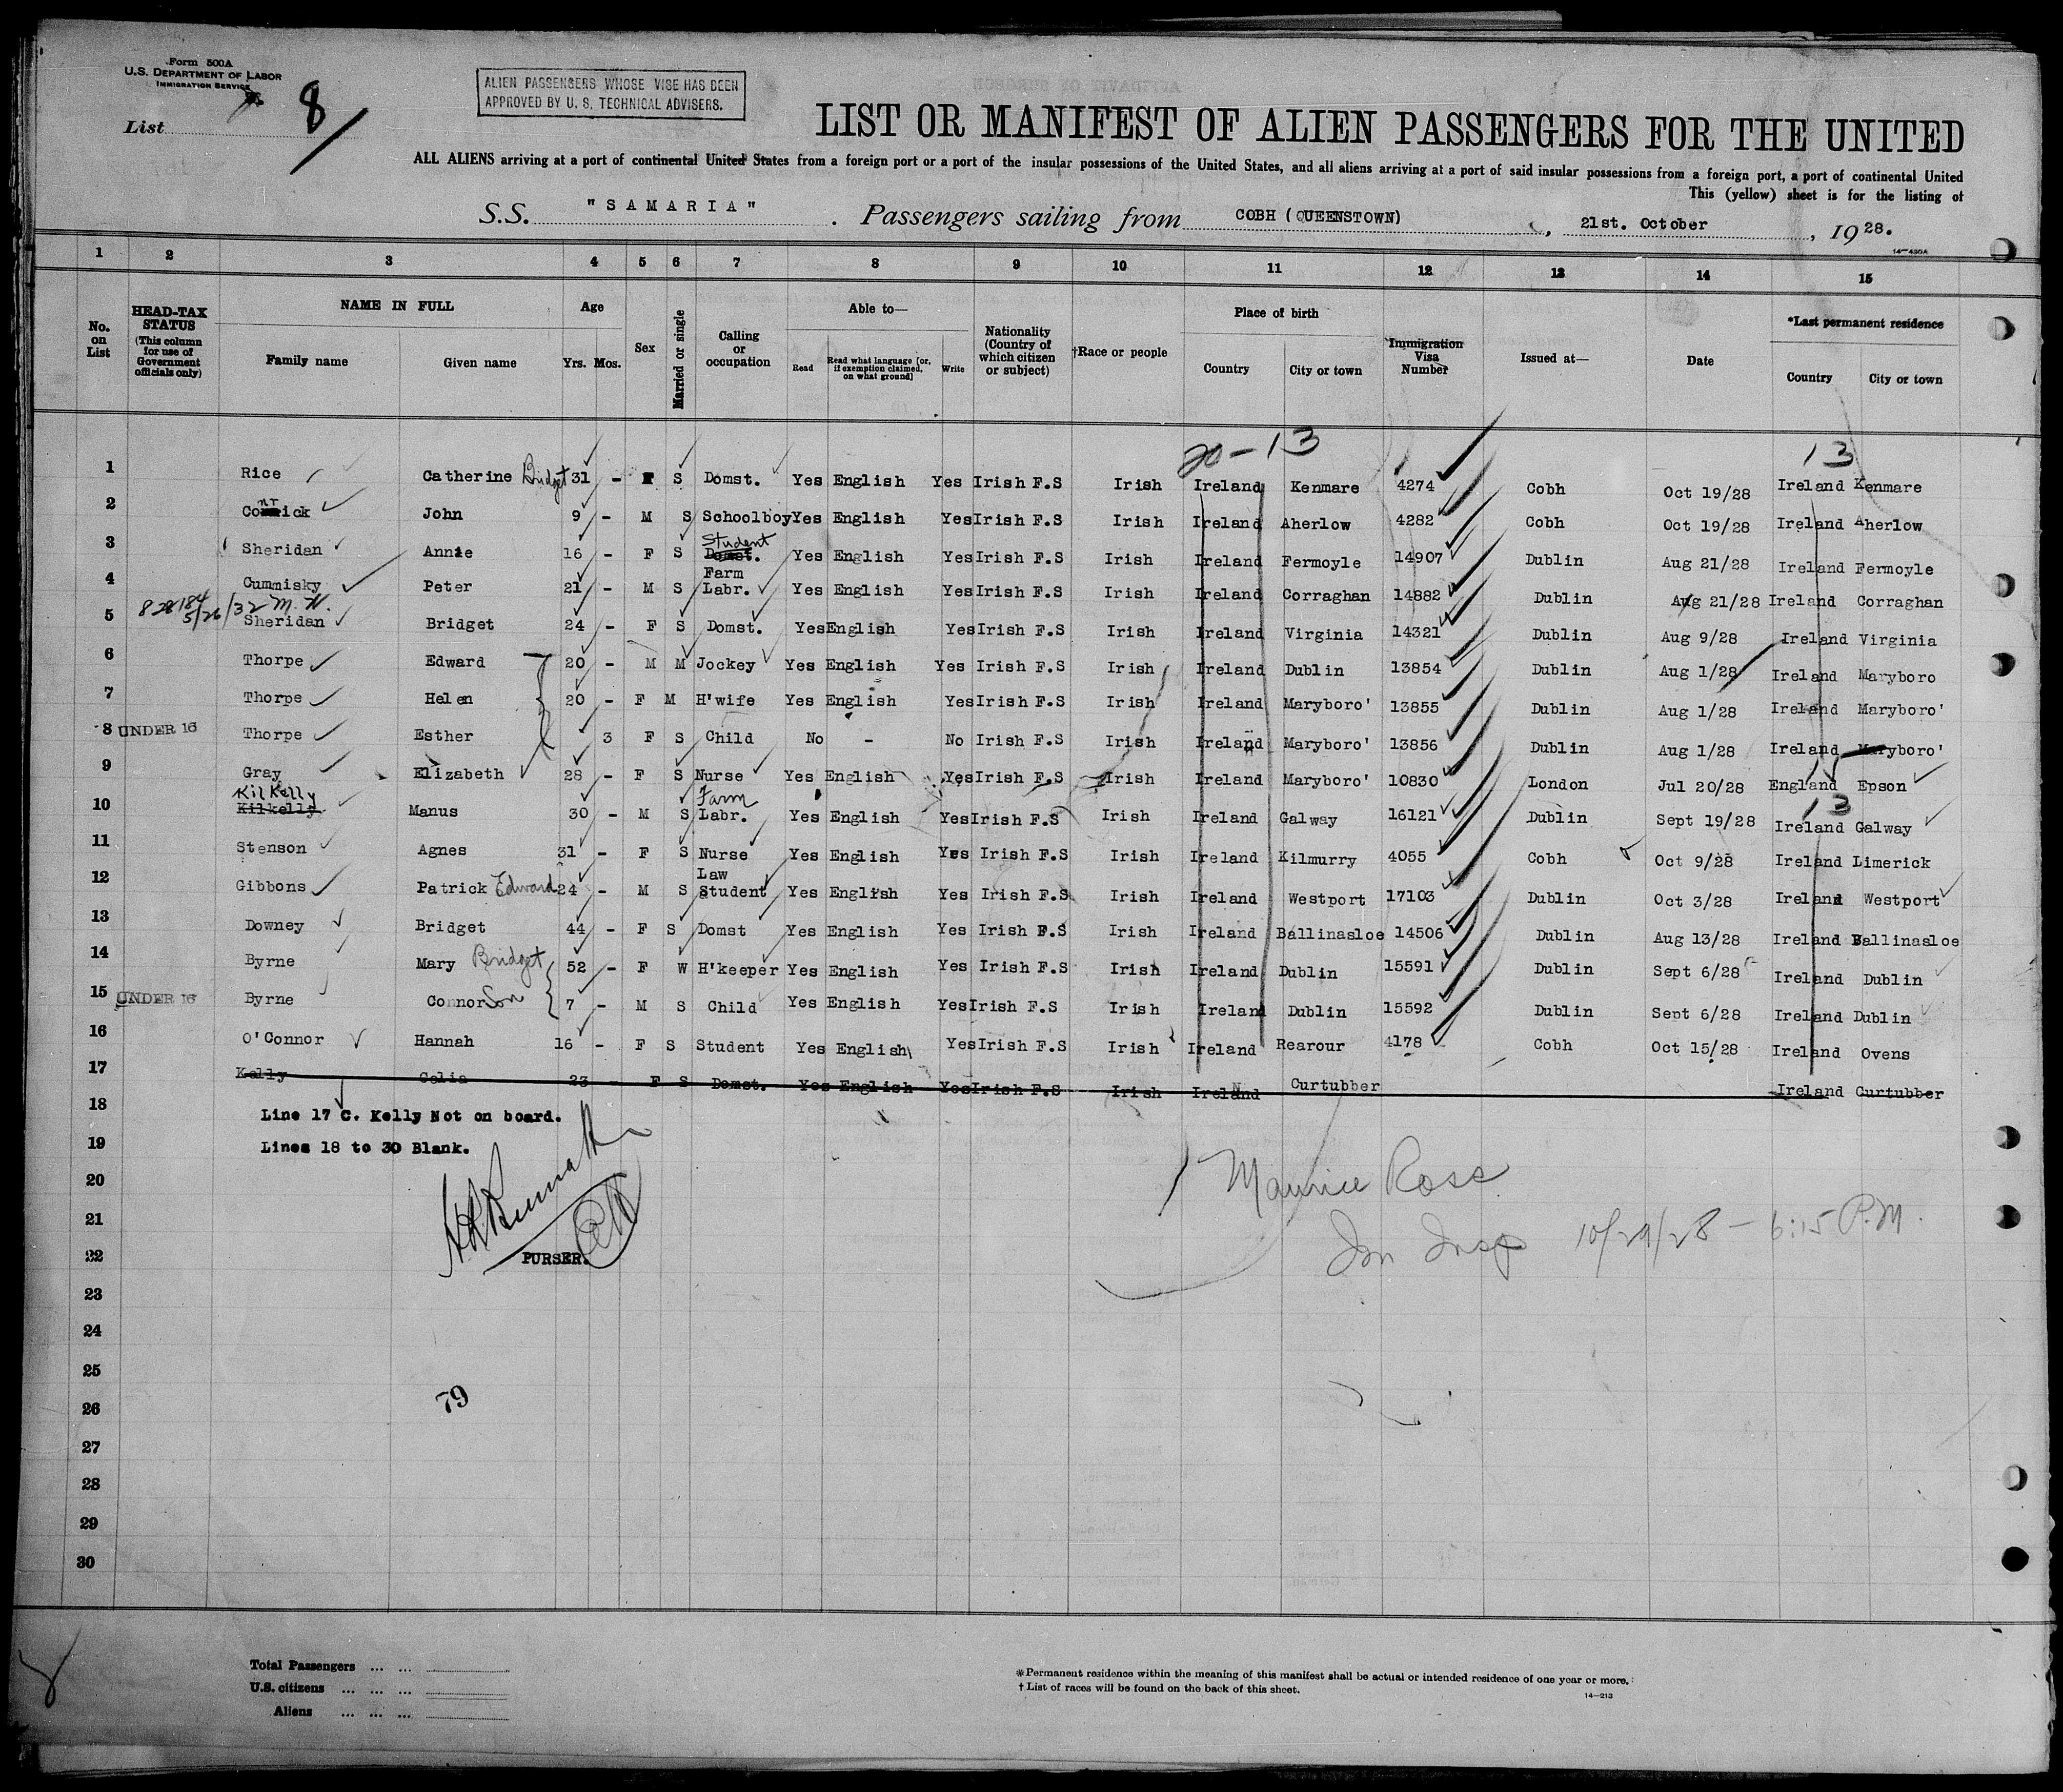 Form 500A
U.S. DEPARTMENT OF LABOR
IMMIGRATION SERVICE
List 8
ALIEN PASSENGERS WHOSE VISE HAS BEEN
APPROVED BY U. S. TECHNICAL ADVISERS.
LIST OR MANIFEST OF ALIEN PASSENGERS FOR THE UNITED
ALL ALIENS arriving at a port of continental United States from a foreign port or a port of the insular possessions of the United States, and all aliens arriving at a port of said insular possessions from a foreign port, a port of continental United
This (yellow) sheet is for the listing of
S.S. "SAMARIA". Passengers sailing from COBH (QUEENSTOWN), 21st. October, 1928.
14—430A
1 2 3 4 5 6 7 8 9 10 11 12 13 14 15
No. on List
HEAD-TAX STATUS (This column for use of Government officials only)
NAME IN FULL Family name Given name
Age Yrs. Mos.
Sex
Married or single
Calling or occupation
Able to— Read Read what language [or, if exemption claimed, on what ground] Write
Nationality (Country of which citizen or subject)
†Race or people
Place of birth Country City or town
Immigration Visa Number
Issued at—
Date
*Last permanent residence Country City or town
20-13 13
1 Rice Catherine Bridget 31 - F S Domst. Yes English Yes Irish F.S Irish Ireland Kenmare 4274 Cobh Oct 19/28 Ireland Kenmare
2 John 9 - M S Schoolboy Yes English Yes Irish F.S Irish Ireland Aherlow 4282 Cobh Oct 19/28 Ireland Aherlow
3 Sheridan Annie 16 - F S Domst. Student Yes English Yes Irish F.S Irish Ireland Fermoyle 14907 Dublin Aug 21/28 Ireland Fermoyle
4 Cummisky Peter 21 - M S Farm Labr. Yes English Yes Irish F.S Irish Ireland Corraghan 14882 Dublin Aug 21/28 Ireland Corraghan
5/26/32 M.W.
5 Sheridan Bridget 24 - F S Domst. Yes English Yes Irish F.S Irish Ireland Virginia 14321 Dublin Aug 9/28 Ireland Virginia
6 Thorpe Edward 20 - M M Jockey Yes English Yes Irish F.S Irish Ireland Dublin 13854 Dublin Aug 1/28 Ireland Maryboro
7 Thorpe Helen 20 - F M H'wife Yes English Yes Irish F.S Irish Ireland Maryboro' 13855 Dublin Aug 1/28 Ireland Maryboro'
8 UNDER 16 Thorpe Esther 3 F S Child No - No Irish F.S Irish Ireland Maryboro' 13856 Dublin Aug 1/28 Ireland Maryboro'
9 Gray Elizabeth 28 - F S Nurse Yes English Yes Irish F.S Irish Ireland Maryboro' 10830 London Jul 20/28 England Epson
13
10 Kilkelly Kilkelly Manus 30 - M S Farm Labr. Yes English Yes Irish F.S Irish Ireland Galway 16121 Dublin Sept 19/28 Ireland Galway
11 Stenson Agnes 31 - F S Nurse Yes English Yes Irish F.S Irish Ireland Kilmurry 4055 Cobh Oct 9/28 Ireland Limerick
12 Gibbons Patrick Edward 24 - M S Law Student Yes English Yes Irish F.S Irish Ireland Westport 17103 Dublin Oct 3/28 Ireland Westport
13 Downey Bridget 44 - F S Domst Yes English Yes Irish F.S Irish Ireland Ballinasloe 14506 Dublin Aug 13/28 Ireland Ballinasloe
14 Byrne Mary Bridget 52 - F W H'keeper Yes English Yes Irish F.S Irish Ireland Dublin 15591 Dublin Sept 6/28 Ireland Dublin
15 UNDER 16 Byrne Connor Son 7 - M S Child Yes English Yes Irish F.S Irish Ireland Dublin 15592 Dublin Sept 6/28 Ireland Dublin
16 O'Connor Hannah 16 - F S Student Yes English Yes Irish F.S Irish Ireland Rearour 4178 Cobh Oct 15/28 Ireland Ovens
17 Kelly Celia 23 - F S Domst. Yes English Yes Irish F.S Irish Ireland Curtubber Ireland Curtubber
18 Line 17 C. Kelly Not on board.
19 Lines 18 to 30 Blank.
20 Maurice Ross
21 Im Insp 10/29/28 - 6:15 P.M.
22 PURSER.
23
24
25
26 79
27
28
29
30
Total Passengers ... ...
U.S. citizens ... ... ...
Aliens ... ... ...
*Permanent residence within the meaning of this manifest shall be actual or intended residence of one year or more.
† List of races will be found on the back of this sheet.
14—213